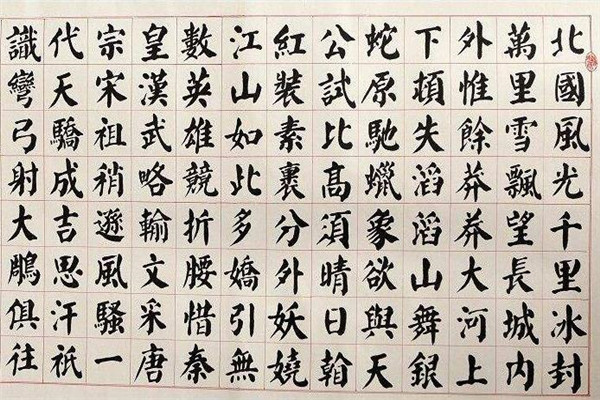 北國風光千里冰封
萬里雪飄望長城内
外惟餘莽莽大河上
下頓失滔滔山舞銀
蛇原馳蠟象欲與天
公試比高須晴日翰
紅裝素裹分外妖嬈
江山如此多嬌引無
數英雄競折腰惜秦
皇漢武略輸文采唐
宗宋祖稍遜風騷一
代天驕成吉思汗祇
識彎弓射大鵰俱往